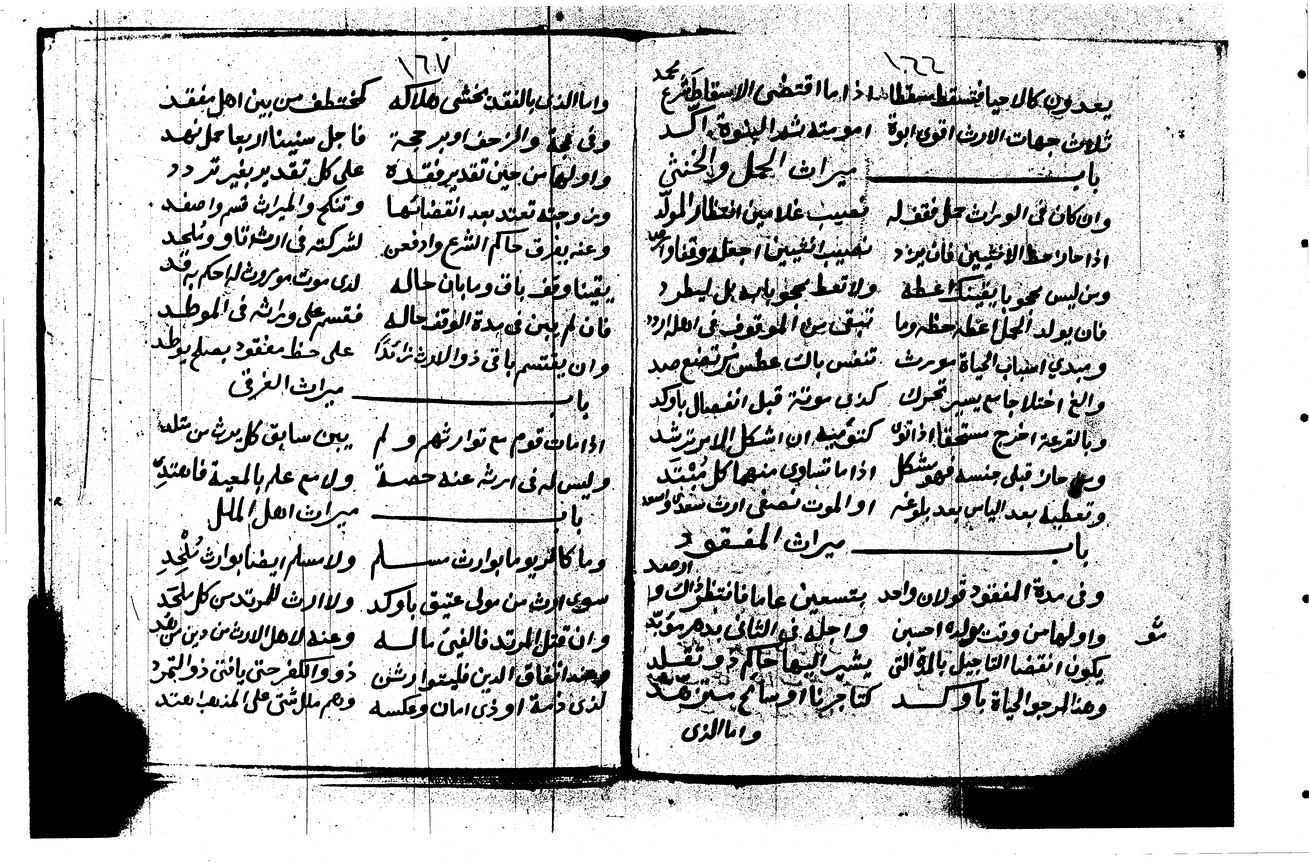 ١٦٦
يعدون كالاحيا فتسقط سقطا اذا ما اقتضى الاسقاط شرع محمد
ثلاث جهات الارث اقوى ابوة امومته ثم البنوة اكد
باب ميراث الحمل والخنثى
وان كان فى الوراث حمل فقف له نصيب غلامين انتظار المولد
اذا حاز حظ الانثيين فان يزد نصيب انثيين اجعله وقفا
ومن ليس محجوبا يقينك اعطه ولا تعط محجوبا به بل ليطرد
فان يولد الحمل اعطه حظه وما تبقى من الموقوف فى اهله اردد
ومبدي اسباب الحياة مورث تنفس باك عطس مرتضع صد
والغ اختلاجا مع يسير تحرك كذى موتة قبل انفصال باوكد
وبالقرعة اخرج مستحقا اذا توى كتوئمه ان اشكل الامر ترشد
ومن حاز قبلى جنسه فهو مشكل اذا ما تساوى منهما كل مبتد
وتعطيه بعد الياس بعد بلوغه او الموت نصفى ارث
باب ميراث المفقود
وفى مدة المفقود قولان واحد بتسعين عاما فانتظر ذاك وارصد
واولها من وقت مولده احسبن واجله فى الثانى بدهر مؤبد
يكون انقضا التاجيل بالمدة التى يشير اليها حاكم ذو تقلد
وهذا لمرجو الحياة باوكد كتاجرنا او سائح متزهد
واما الذى
١٦٧
واما الذى بالفقد يخشى هلاكه كمختطف من بين اهل مفقد
وفى لجة والزحف او بر حجة فاجل سنينا اربعا حمل نهد
واولها من حين تقدير فقده على كل تقدير بغير تردد
وزوجته تعتد بعد انقضائها وتنكح والميراث قسم واصفد
وعنه يفرق حاكم الشرع وادفعن لشركته فى الارث
يقينا وقف باق وما بان حاله لدى موت موروث له احكم به قد
فان لم يبن فى مدة الوقف حاله فقسم على وراثه فى الموطد
وان يقتسم باقى ذوالارث زائدا على حظ مفقود بصلح يوطد
باب ميراث الغرقى
اذا مات قوم مع توارثهم ولم يبن سابق كل يرث من تلد
وليس له فى ارثه عنه حصة ولا مع علم بالمعية فاهتد
باب ميراث اهل الملل
وما كافر يوما بوارث مسلم ولا مسلم ايضا بوارث ملحد
سوى ارث من مولى عتيق باوكد ولا ارث للمرتد من كل ملحد
وان قتل المرتد فالفيئ ماله وعنه لاهل الارث من دين
وعند اتفاق الدين فليتوارثن ذوو الكفر حتى يافتى ذو التمرد
لذى ذمة او ذى امان وعكسه وهم ملل شتى على المذهب اعتد